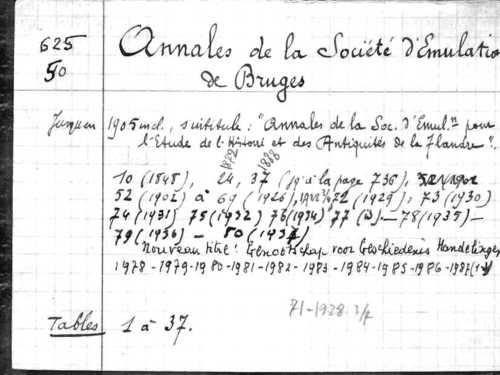 625
50
Annales de la Société d'Emulation
de Bruges
Jusqu'en 1905 incl., subtitulé: "Annales de la Soc. d'Emul.n pour
l'Etude de l'Histoire et des Antiquités de la Flandre".
1882 1888
10 (1848), 24, 37 (jq. à la page 736),
52 (1902) à 69 (1926), 72 (1929), 73 (1930)
74 (1931) 75 (1932) 76 (1934) 77 — 78 (1935) —
79 (1936) — 80 (1937)
Nouveau titel: Genootschap voor Geschiedenis Handelingen
1978 - 1979 - 1980 - 1981 - 1982 - 1983 - 1984 - 1985 - 1986 - 1987
71 - 1928
Tables 1 à 37.